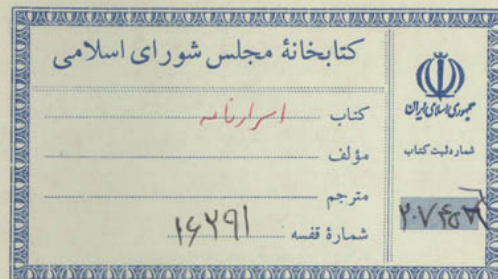 کتابخانهٔ مجلس شورای اسلامی
کتاب اسرارنامه
مؤلف
مترجم
شمارهٔ قفسه ۱۶۲۹۱
جمهوری اسلامی ایران
شماره ثبت کتاب